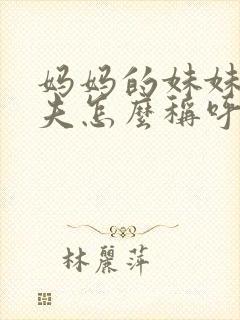 妈妈的妹妹
夫怎麼稱呼
林麗萍